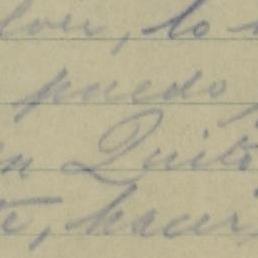 lver, lo
puedo
en Quito
te, hacer